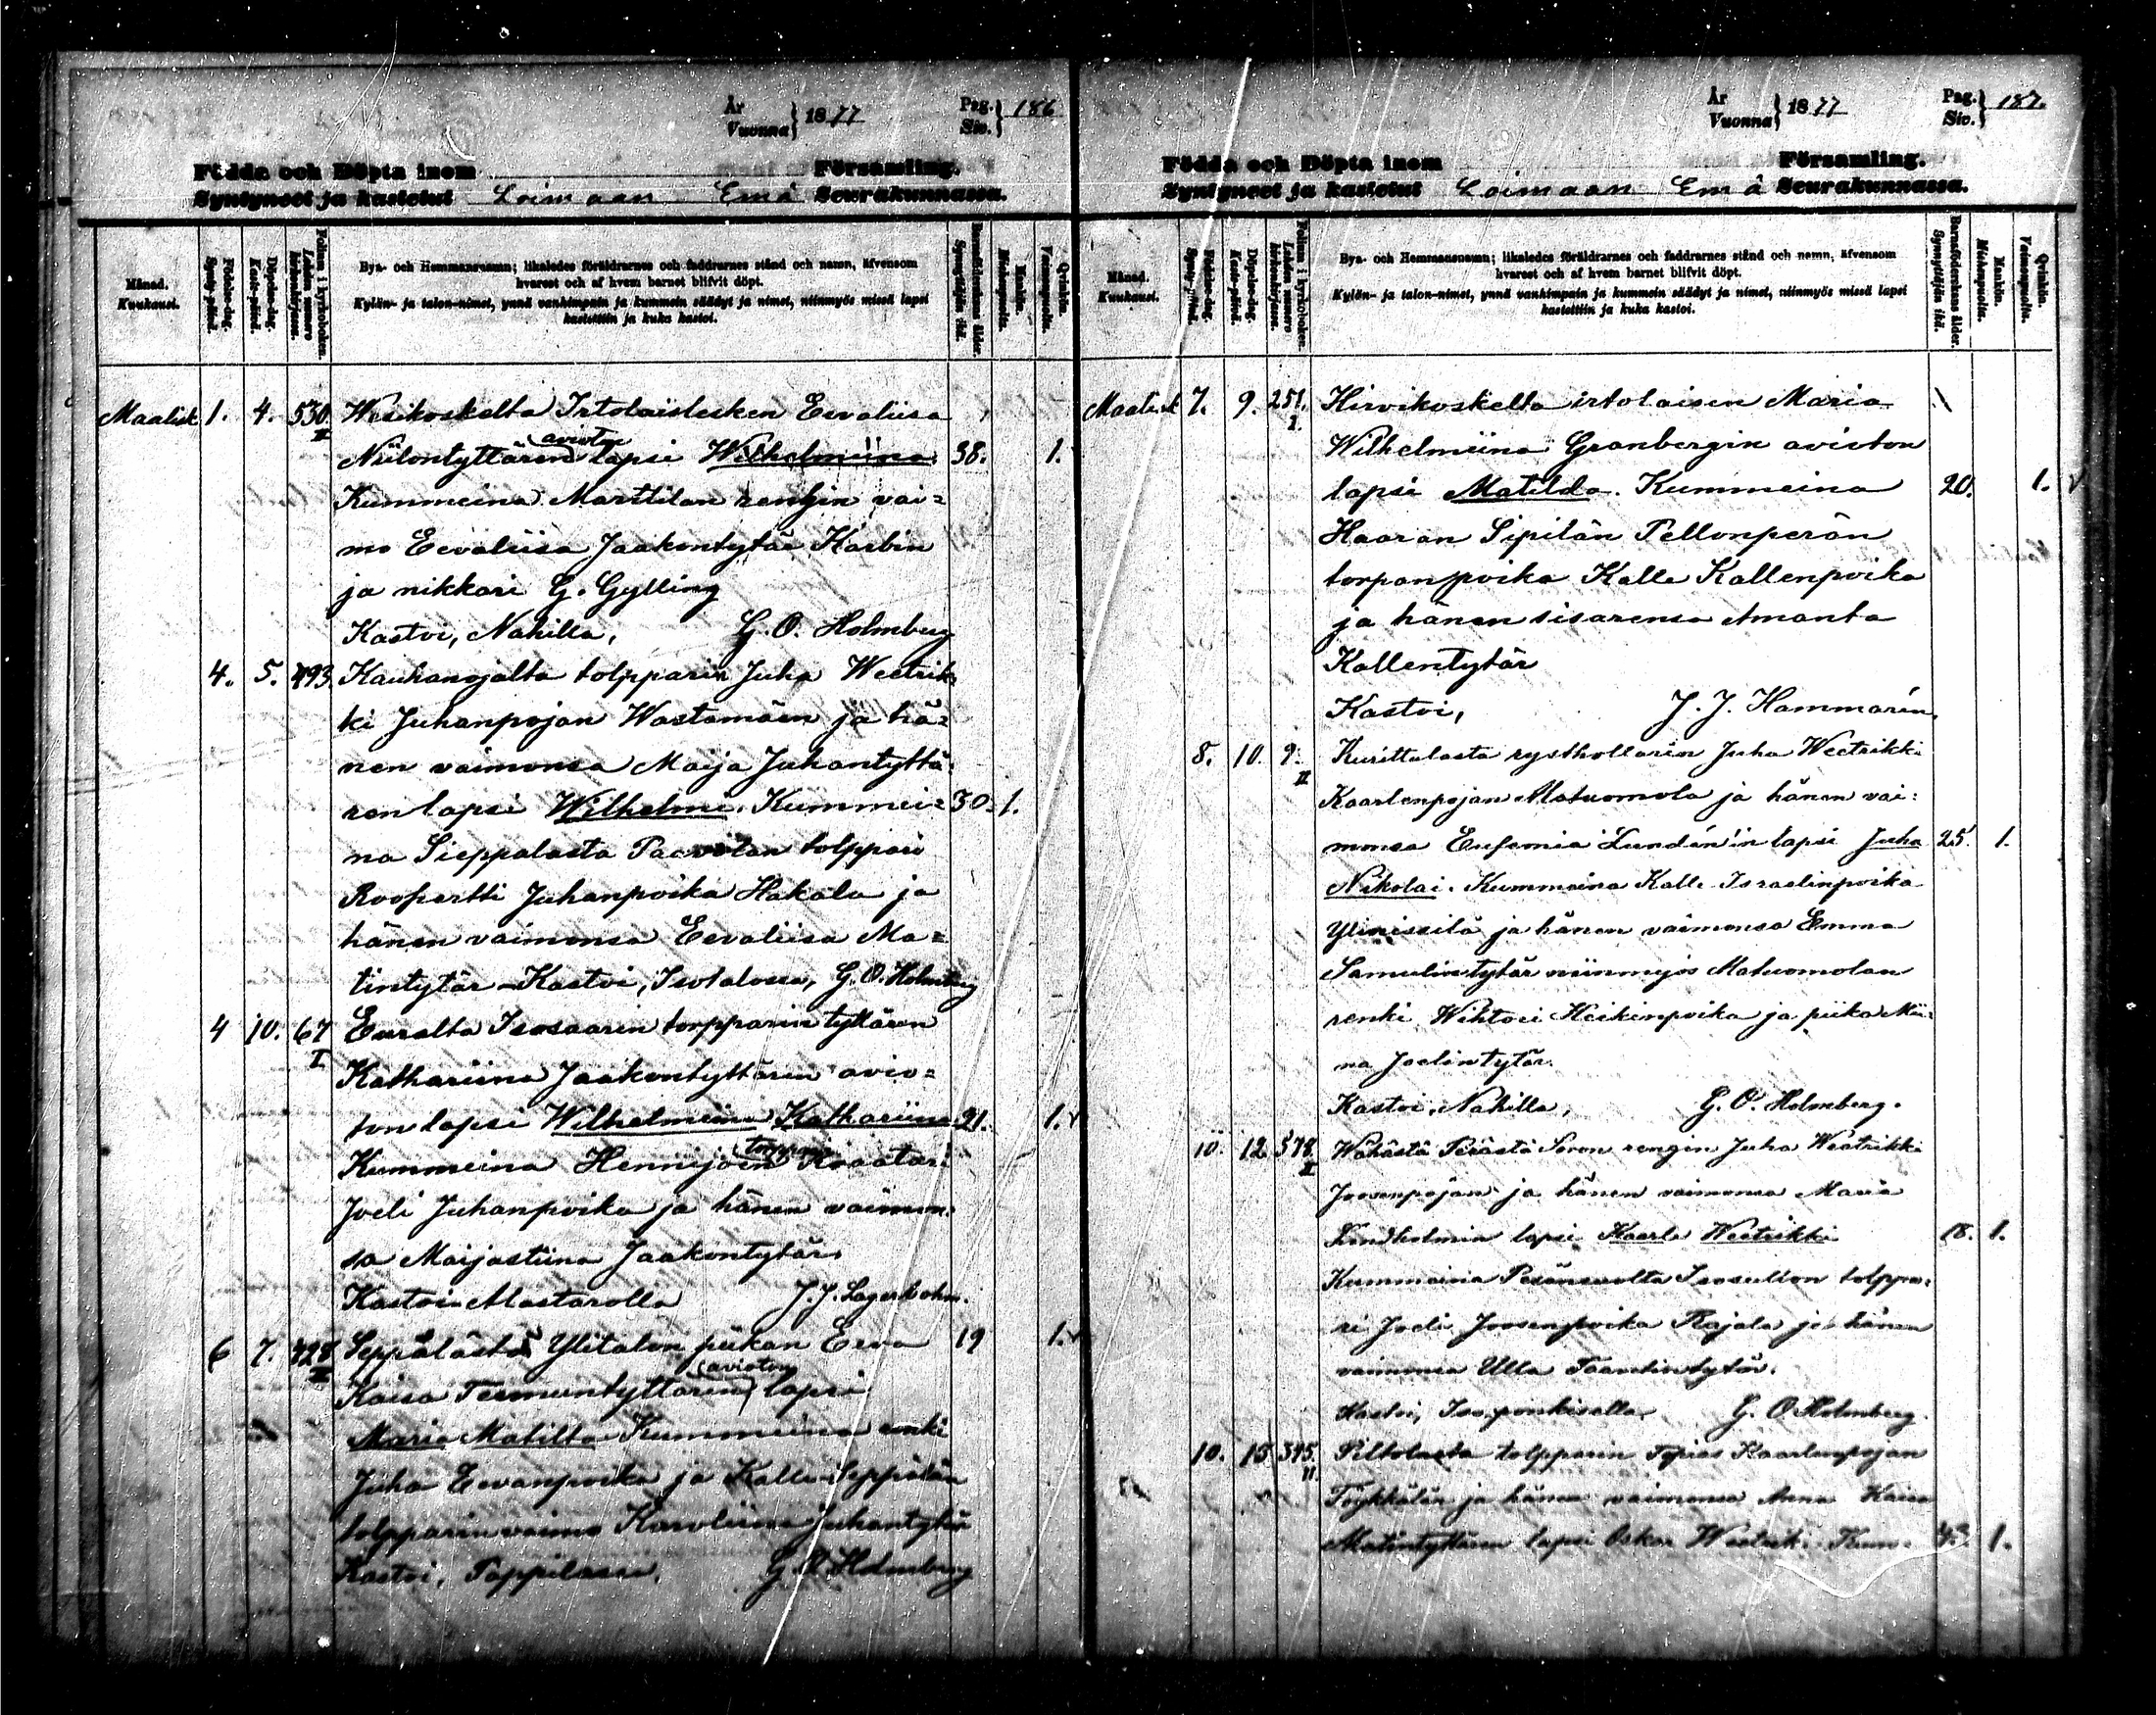 År
Vuonna } 1877
Pag.
Siv. } 186
Födda och Döpta inom Församling.
Syntyneet ja kastetut Loimaan Emä Seurakunnassa.
Månad.
Kuukausi.
Födelse-dag.
Synty-päivä.
Döpelse-dag.
Kaste-päivä.
Folium i kyrkoboken.
Lehden numero kirkonkirjassa.
Bya- och Hemmansnamn; likaledes föräldrarnes och faddrarnes stånd och namn, äfvensom
hvarest och af hvem barnet blifvit döpt.
Kylän- ja talon-nimet, ynnä vanhimpain ja kummein säädyt ja nimet, niinmyös missä lapsi
kastettiin ja kuka kastoi.
Barnaföderskans ålder.
Synnyttäjän ikä.
Mankön.
Miehenpuolia.
Qvinkön.
Vaimonpuolia.
Maalisk 1. 4. 530 II Wesikoskelta Irtolaislesken Eevaliisa
Niilontyttären avioton lapsi Wilhelmiina. 38. 1.
Kummeina Marttilan rengin vai=
mo Eevaliisa Jaakontytär Karbin
ja nikkari G. Gylling
Kastoi, Nahilla, G. O. Holmberg
4. 5. 493. Kauhanojalta tolpparin Juha Weetrik=
ki Juhanpojan Wastamäen ja hä=
nen vaimonsa Maija Juhantyttä=
ren lapsi Wilhelmi. Kummei= 30. 1.
na Sieppalasta Paavolan tolppari
Roopertti Juhanpoika Hakala ja
hänen vaimonsa Eevaliisa Ma=
tintytär Kastoi, Isotalossa, G. O. Holmberg
4 10. 67 I Euralta Isosaaren torpparin tyttären
Kathariina Jaakontyttären avio=
ton lapsi Wilhelmiina Kathariina. 21. 1.
Kummeina Hennijoen torppari
Joeli Juhanpoika ja hänen vaimon=
sa Maijastiina Jaakontytär.
Kastoi Mastarolla J. J. Lagerbohm.
6 7. 428 II Seppälästä Ylitalon piikan Eeva 19 1.
Kaisa avioton lapsi
Maria Matilta Kummeina renki
Juha Eevanpoika ja Kalle Seppälän
tolpparin vaimo Karoliina Juhantytär
Kastoi, Pappilassa, G. O. Holmberg
År
Vuonna } 1877
Pag.
Siv. } 187.
Födda och Döpta inom Församling.
Syntyneet ja kastetut Loimaan Emä Seurakunnassa.
Månad.
Kuukausi.
Födelse-dag.
Synty-päivä.
Döpelse-dag.
Kaste-päivä.
Folium i kyrkoboken.
Lehden numero kirkonkirjassa.
Bya- och Hemmansnamn; likaledes föräldrarnes och faddrarnes stånd och namn, äfvensom
hvarest och af hvem barnet blifvit döpt.
Kylän- ja talon-nimet, ynnä vanhimpain ja kummein säädyt ja nimet, niinmyös missä lapsi
kastettiin ja kuka kastoi.
Barnaföderskans ålder.
Synnyttäjän ikä.
Mankön.
Miehenpuolia.
Qvinkön.
Vaimonpuolia.
Maalisk 7. 9. 251. I. Hirvikoskelta irtolaisen Maria
Wilhelmiina Granbergin avioton
lapsi Matilda. Kummeina 20. 1.
Haaran Sipilän Pellonperän
torpanpoika Kalle Kallenpoika
ja hänen sisarensa Amanta
Kallentytär
Kastoi, J. J. Hammarén.
8. 10. 9. II Kurittalasta rysthollarin Juha Weetrikki
Kaarlenpojan Matuomola ja hänen vai=
monsa Eufemia Lundén'in lapsi Juha 25. 1.
Nikolai. Kummeina Kalle Israelinpoika
Ylinissilä ja hänen vaimonsa Emma
Samulintytär niinmyös Matuomolan
renki Wihtori Heikinpoika ja piika Mii=
na Joelintytär.
Kastoi, Nahilla, G. O. Holmberg.
10. 12. II Wähästä Perästä Soron rengin Juha Weetrikki
Joosenpojan ja hänen vaimonsa Maria
Lindholmin lapsi Kaarle Weetrikki 18. 1.
Kummeina Isosulion tolppa=
ri Joeli Joosenpoika Rajala ja hänen
vaimonsa Ulla Taavetintytär.
Kastoi, G. O. Holmberg.
10. 15 395. II. Piltolasta tolpparin Topias Kaarlenpojan
ja hänen vaimonsa Anna Kaisa
Matintyttären lapsi Oskar Weetrik. Kum= 43. 1.